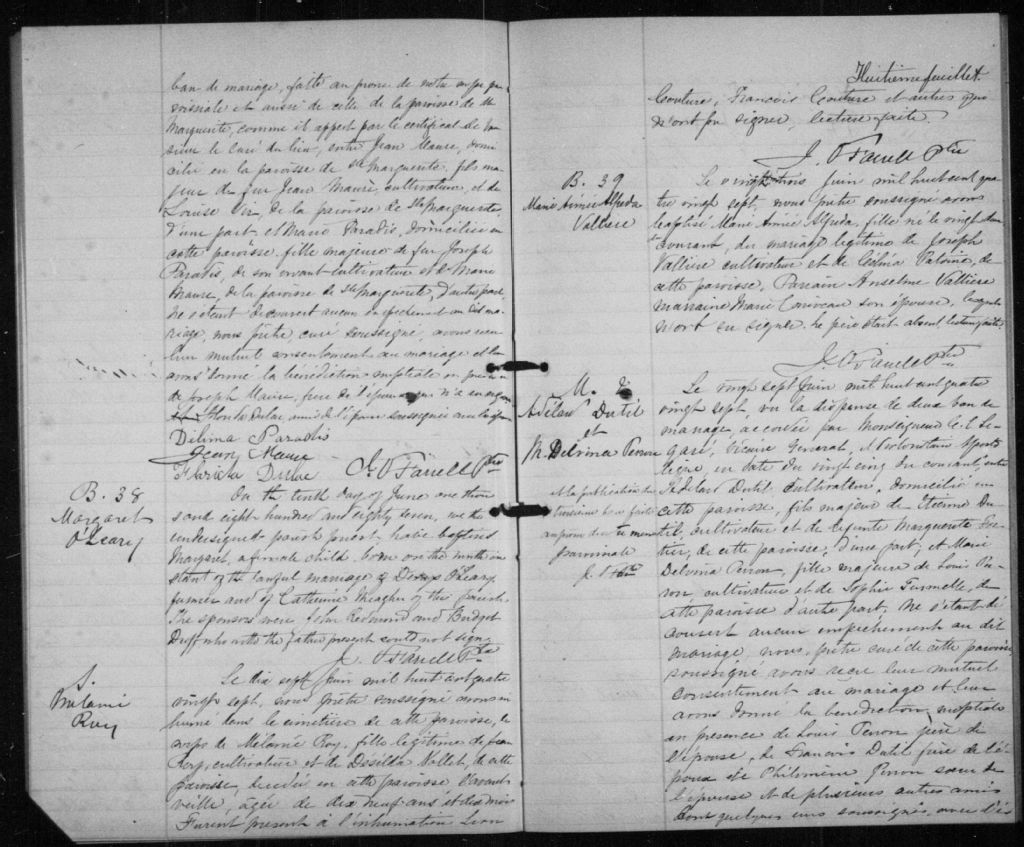 ban de mariage, faite au prone de notre messe pa
roissiale et aussi de celle de la paroisse de Ste
Marguerite, comme il appert par le certificat de Mon
sieur le curé du lieu, entre Jean Maure, domi
cilié en la paroisse de Ste Marguerite, fils ma
jeur de feu Jean Maure, cultivateur, et de
Louise de la paroisse de Ste Marguerite,
d'une part, et Marie Paradis, domiciliée en
cette paroisse, fille majeure de feu Joseph
Paradis, de son vivant cultivateur et de Marie
Maure, de la paroisse de Ste Marguerite, d'autre part,
ne s'étant découvert aucun empêchement au dit ma
riage, nous, prêtre, curé soussigné, avons reçu
leur mutuel consentement au mariage et leur
avons donné la bénédiction nuptiale en présence
de Joseph Maure, frère de l'époux
Dulac, ami de l'époux soussigné avec les époux
Delima Paradis
Jean Maure
Dulac J. O'Farrell Ptre
B. 38
Margaret
O'Leary
On the tenth day of June one thou
sand eight hundred and eighty seven, we the
undersigned parish priest have baptised
Margaret, a female child born on the ninth in
stant of the lawful marriage of O'Leary,
farmer and of Catherine Meagher of this parish.
The sponsors were John Redmond and Bridget
Duff who with the father present could not sign.
J. O'Farrell Ptre
S.
Melanie
Roy
Le dix sept Juin mil huit cent quatre
vingt sept, nous prêtre soussigné avons in
humé dans le cimetière de cette paroisse, le
corps de Mélanie Roy, fille légitime de Jean
Roy, cultivateur et de Vallet, de cette
paroisse, decedée en cette paroisse l'avant
veille, agée de dix neuf ans et six mois
Furent présent à l'inhumation Leon
Huitième feuillet.
Couture, François Couture et autres qui
n'ont su signer, lecture faite.
J. O'Farrell Ptre
B. 39
Marie Aimée Alfreda
Vallière
Le vingt trois Juin mil huit cent qua
tre vingt sept, nous prêtre soussigné avons
baptisé Marie Aimée Alfreda, fille née le vingt deux
courant, du mariage légitime de Joseph
Vallière cultivateur et de Célina Patoine, de
cette paroisse. Parrain Anselme Vallière
marraine Marie Corriveau son épouse, lesquels
n'ont su signer. Le père était absent lecture faite
J. O'Farrell Ptre
M.
Adélard Dutil
et
M. Delvina Perron
Le vingt sept Juin mil huit cent quatre
vingt sept, vu la dispense de deux ban de
mariage, accordée par Monseigneur C. E. Lé
garé, Vicaire Général, et Protonotaire Aposto
lique, en date du vingt cinq du courant, entre
et la publication du
troisième ban faite
au prone de notre messe
paroissiale
J. O'F. Ptre
Adélard Dutil, cultivateur, domicilié en
cette paroisse, fils majeur de Etienne Du
til, cultivateur et de défunte Marguerite
de cette paroisse, d'une part, et Marie
Delvina Perron, fille majeure de Louis Per
ron, cultivateur et de Sophie Turmelle, de
cette paroisse d'autre part, ne s'étant dé
couvert aucun empêchement au dit
mariage, nous, prêtre curé de cette paroisse,
soussigné avons reçu leur mutuel
consentement au mariage et leur
avons donné la bénédiction nuptiale
en présence de Louis Perron père de
l'épouse, de François Dutil frère de l'é
poux et de Philomène Perron sœur de
l'épouse et de plusieurs autres amis
dont quelques uns soussignés, avec l'é